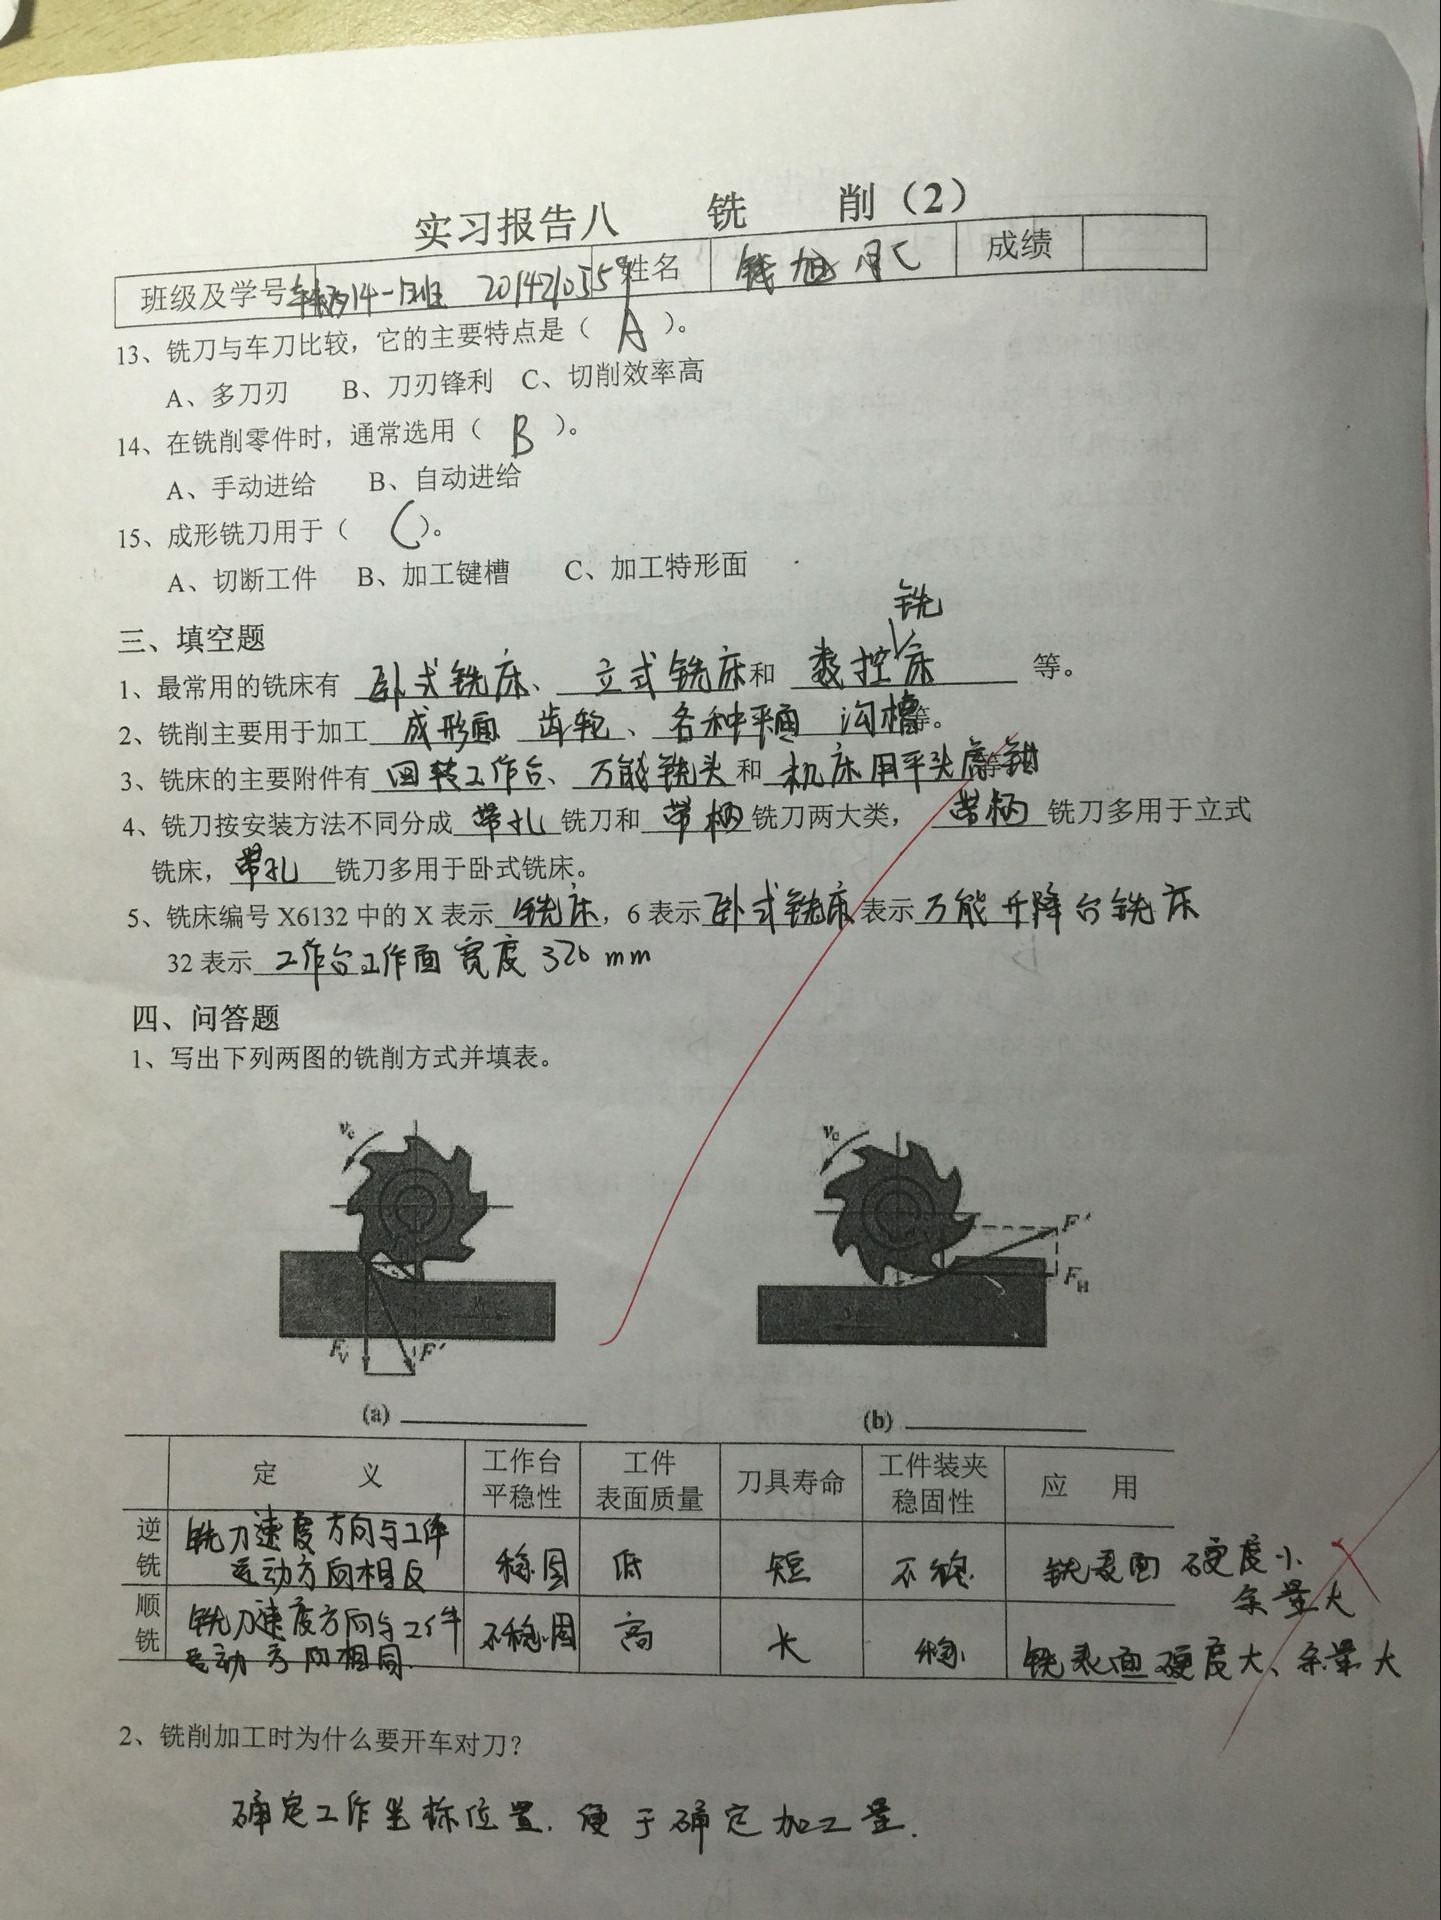 实习报告八 铣 削（2）
班级及学号 车辆14-1班 201421055 姓名 钱旭 成绩
13、铣刀与车刀比较，它的主要特点是（ A ）。
A、多刀刃 B、刀刃锋利 C、切削效率高
14、在铣削零件时，通常选用（ B ）。
A、手动进给 B、自动进给
15、成形铣刀用于（ C ）。
A、切断工件 B、加工键槽 C、加工特形面
三、填空题
1、最常用的铣床有 卧式铣床、 立式铣床和 数控铣床 等。
2、铣削主要用于加工 成形面 齿轮、各种平面 沟槽等。
3、铣床的主要附件有 回转工作台、万能铣头和 机床用平头虎钳等
4、铣刀按安装方法不同分成 带孔 铣刀和 带柄 铣刀两大类， 带柄 铣刀多用于立式
铣床， 带孔 铣刀多用于卧式铣床。
5、铣床编号 X6132 中的 X 表示 铣床，6 表示 卧式铣床 表示 万能升降台铣床
32 表示 工作台工作面宽度320mm
四、问答题
1、写出下列两图的铣削方式并填表。
vc vc
F' FH
Fv F'
(a) (b)
定 义 工作台平稳性 工件表面质量 刀具寿命 工件装夹稳固性 应 用
逆铣 铣刀速度方向与工件运动方向相反 稳固 低 短 不稳 铣表面硬度小 余量大
顺铣 铣刀速度方向与工件运动方向相同. 不稳固 高 长 稳 铣表面硬度大、余量大
2、铣削加工时为什么要开车对刀？
确定工作坐标位置. 便于确定加工量.